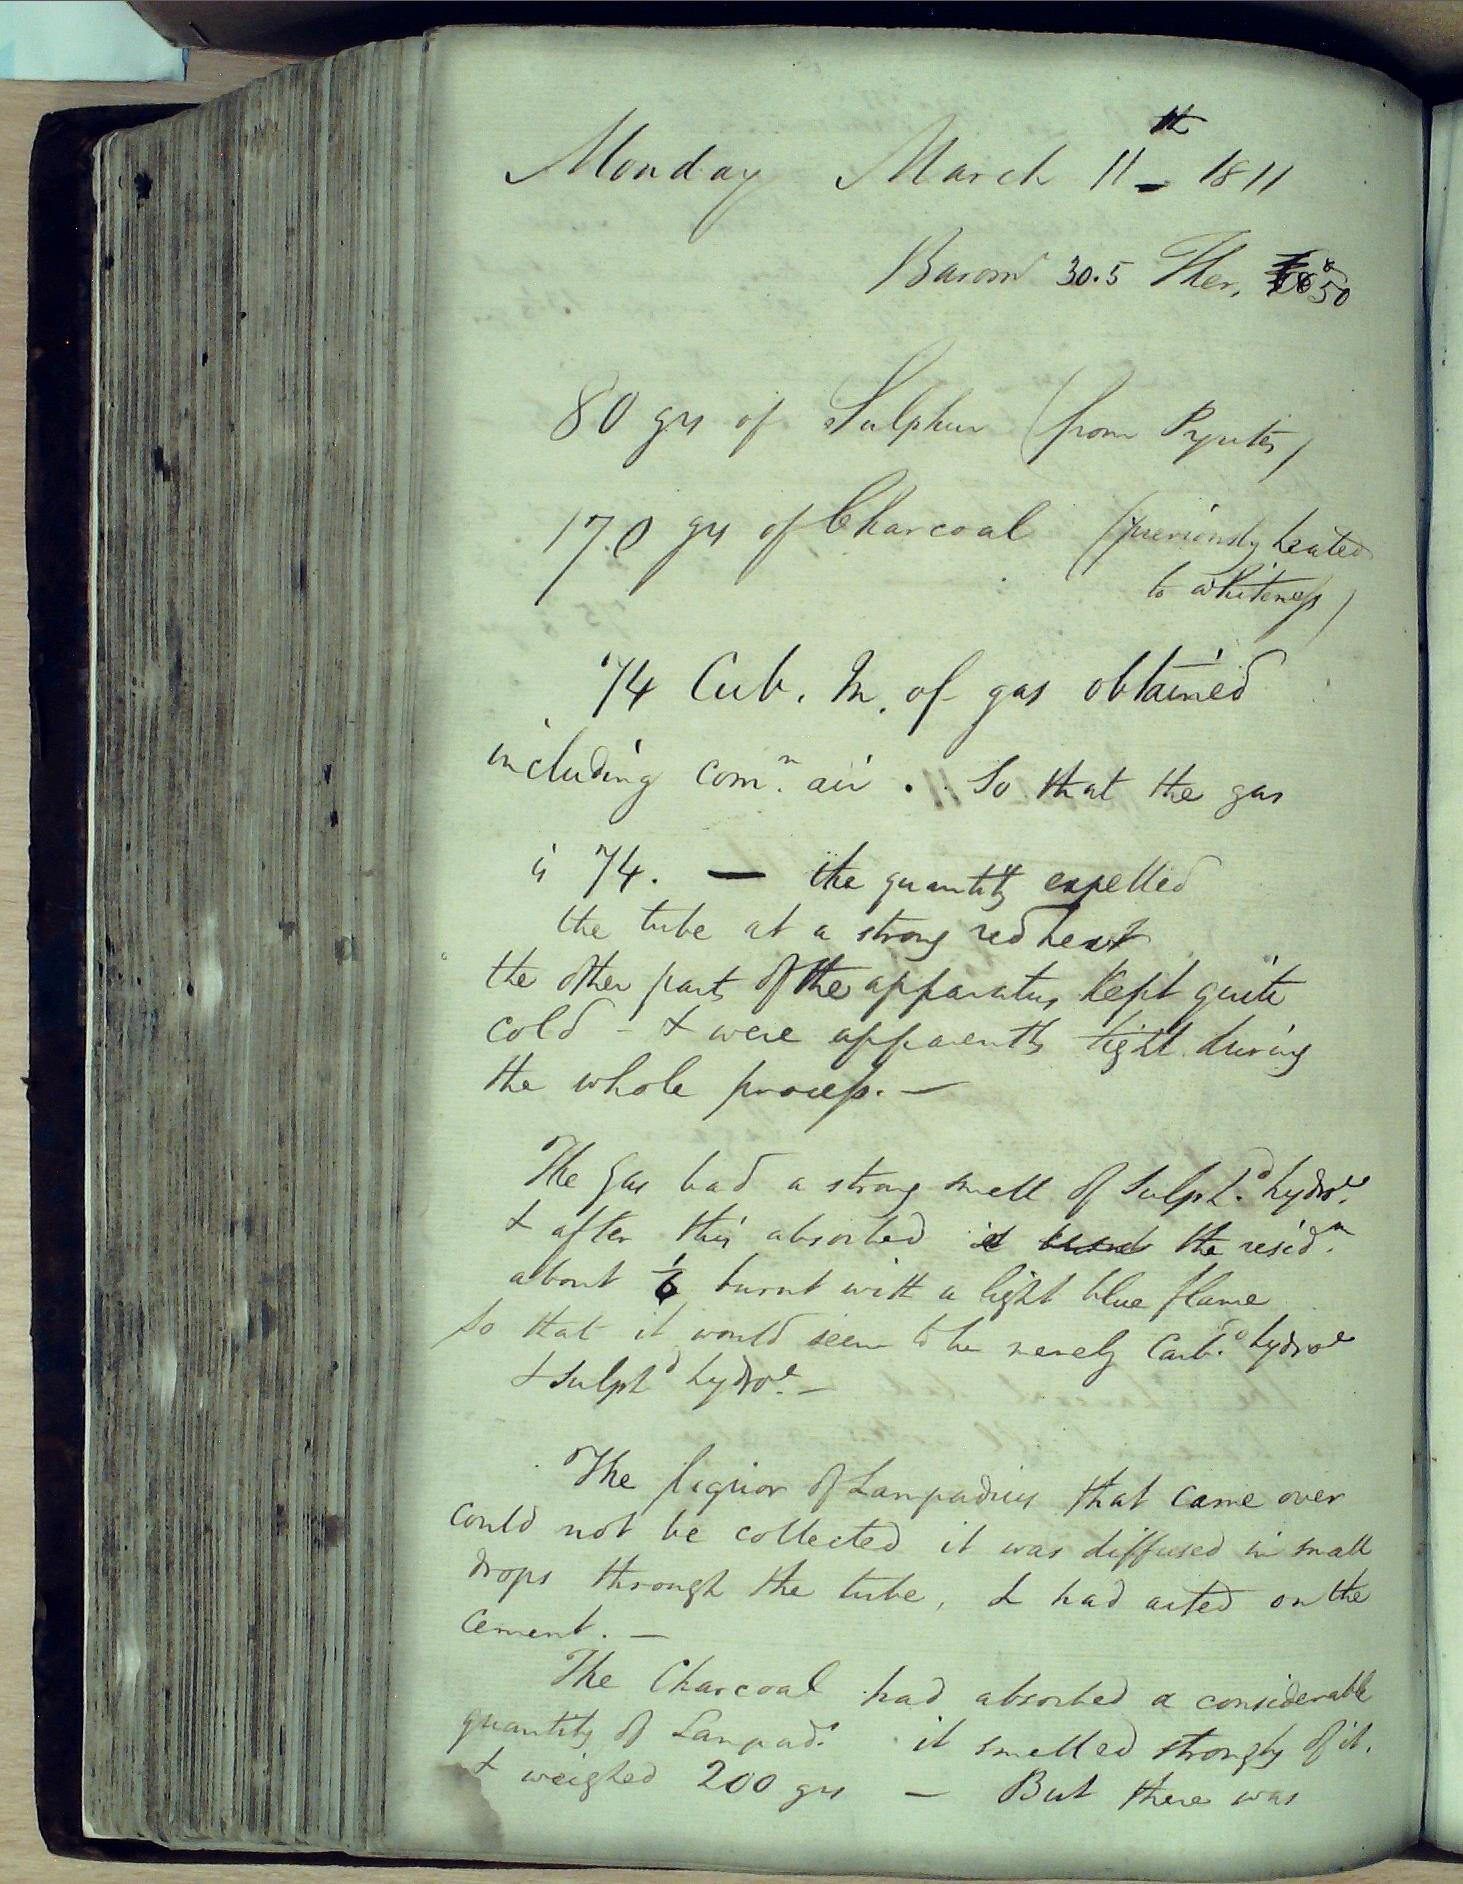 Monday March 11th 1811
Baromr 30.5 Ther. 50°
80 grs of Sulphur (from Pyrites)
170 grs of Charcoal (previously heated
to whiteness)
74 Cub. In. of gas obtained
including comn. air. So that the gas
is 74. — the quantity expelled
the tube at a strong red heat
the other parts of the apparatus kept quite
cold - & were apparently tight during
the whole process. —
The gas had a strong smell of Sulphd. hydroe.
& after this absorbed it burnt the residm.
about 1/6 burnt with a light blue flame
So that it would seem to be merely Carbd. hydroe
& Sulphd hydroe. —
The liquor of Lampadius that came over
could not be collected it was diffused in small
drops through the tube, & had acted on the
cement. —
The Charcoal had absorbed a considerable
quantity of Lampads. it smelled strongly of it.
& weighed 200 grs — But there was